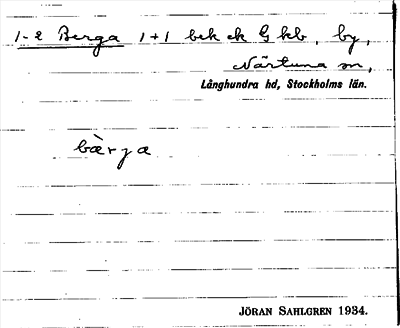 1-2 Berga 1+1 bek ek G kb, by,
Närtuna sn,
Långhundra hd, Stockholms län.
bærja
JÖRAN SAHLGREN 1934.